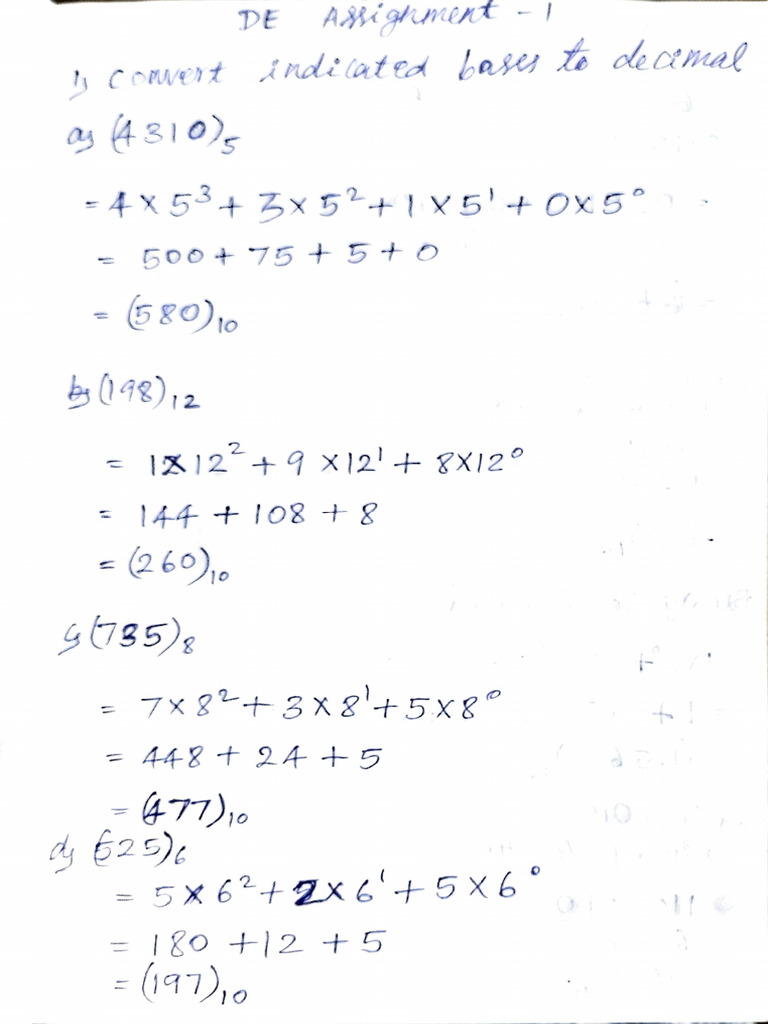 DE Assignment - 1
1) convert indicated bases to decimal
a) (4310)₅
= 4 × 5³ + 3 × 5² + 1 × 5¹ + 0 × 5⁰
= 500 + 75 + 5 + 0
= (580)₁₀
b) (198)₁₂
= 1 × 12² + 9 × 12¹ + 8 × 12⁰
= 144 + 108 + 8
= (260)₁₀
c) (735)₈
= 7 × 8² + 3 × 8¹ + 5 × 8⁰
= 448 + 24 + 5
= (477)₁₀
d) (525)₆
= 5 × 6² + 2 × 6¹ + 5 × 6⁰
= 180 + 12 + 5
= (197)₁₀